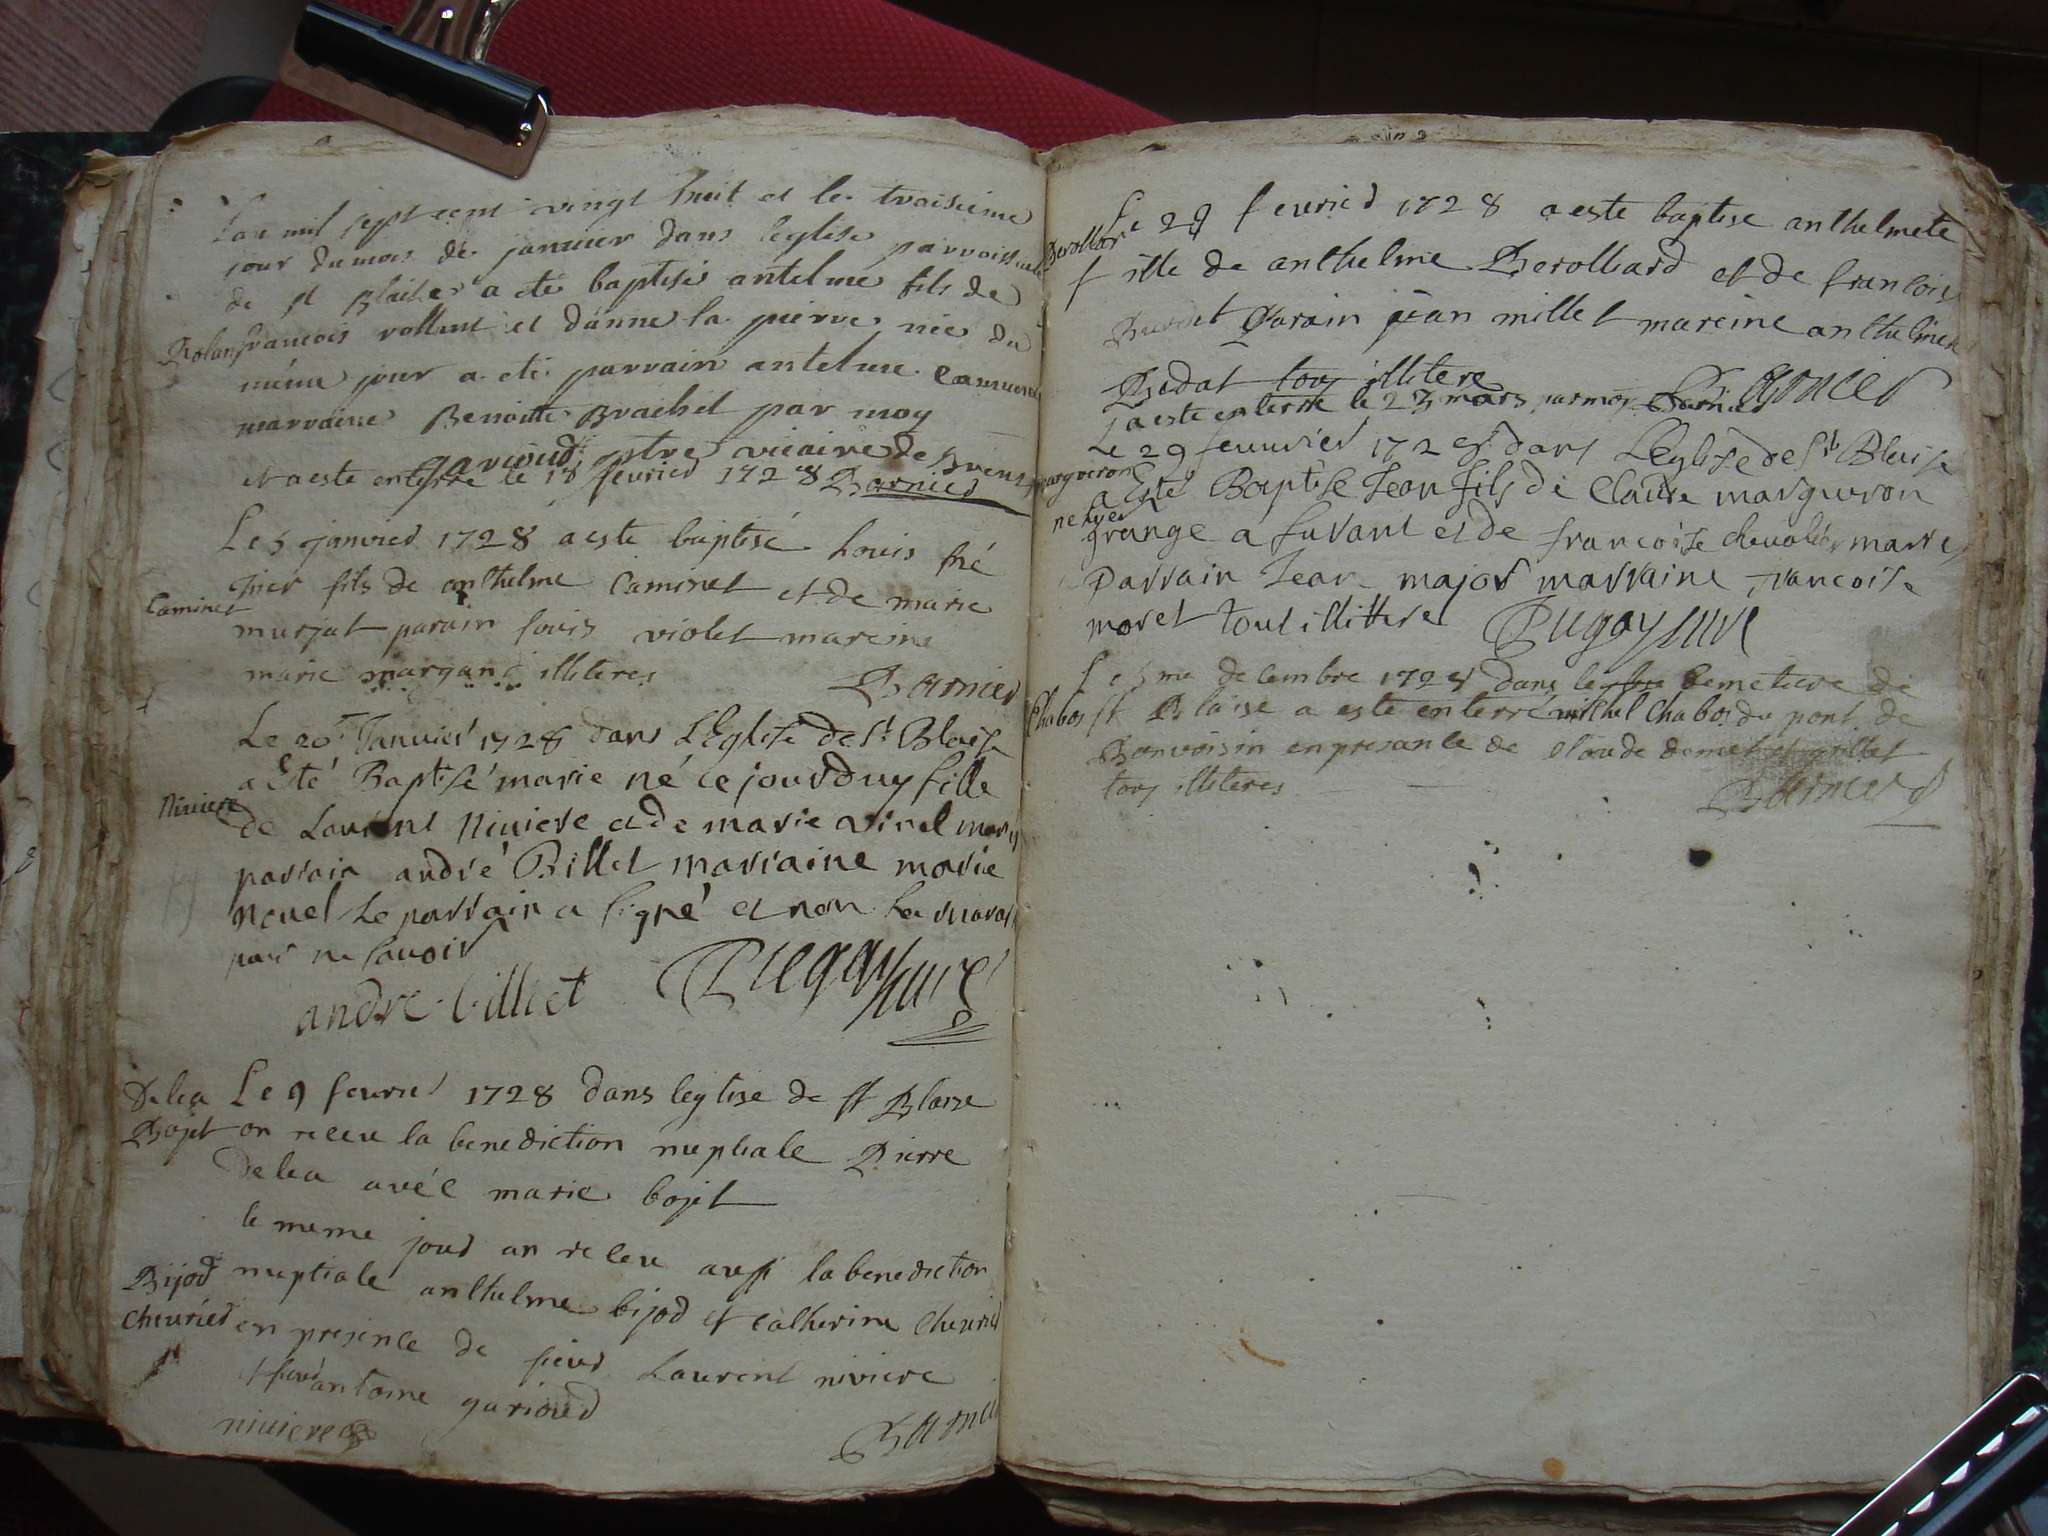 Lan mil sept cent vingt huit et le troisieme
jour du mois de janvier dans leglise parroissiale
de st Blaise a ete baptisé antelme fils de
Rolan francois rollant et danne la pierre née du
même jour a eté parrain antelme
marraine Benoitte Brachet par moy
garioud ptre vicaire de Brens
et a este enterre le 18 fevrier 1728 Barnier
Le 5 janvier 1728 a este baptisé Louis
fils de anthelme Caminet et de marie
Caminet
murjat parain Louis violet mareine
marie margand illiteres Barnier
Le 20e Janvier 1728 dans LEglise de St Blaise
a Esté Baptisé marie né ce jourduy fille
Niviere
de Laurent Niviere et de marie
parrain andré Billet marraine marie
Nevel Le parrain a signé et non La
pour ne savoir
andre billiet Pugay curé
Delea Le 9 fevrier 1728 dans leglise de st Blaise
Bojet on receu la benediction nuptiale Pierre
Delea avéc marie bojet
le meme jour on receu aussi la benediction
Bijod nuptiale anthelme bijod et catherine chevrier
chevrier en presence de sieur Laurent niviere
et sieur antoine garioud
niviere Barnier
Le 29 fevrier 1728 a este baptise anthelmete
Berolliard
fille de anthelme Berolliard et de francoise
parain jean millet mareine anthelmete
Bedat tous illitere Barnier
a este enterre le 23 mars par moy Barnier
Le 29 feuvrier 1728 dans LEglise de St Blaise
margueron
a Esté Baptisé Jean fils de Claude margueron
grangé a et de francoise chevalier
parrain Jean major marraine francoise
moret tout illittere Pugay curé
Le 5me decembre 1728 dans le cemetiere de
Chabos st Blaise a este enterré michel Chabos du pont de
Bonvoisin en presance de claude
tous illiteres
Barnier